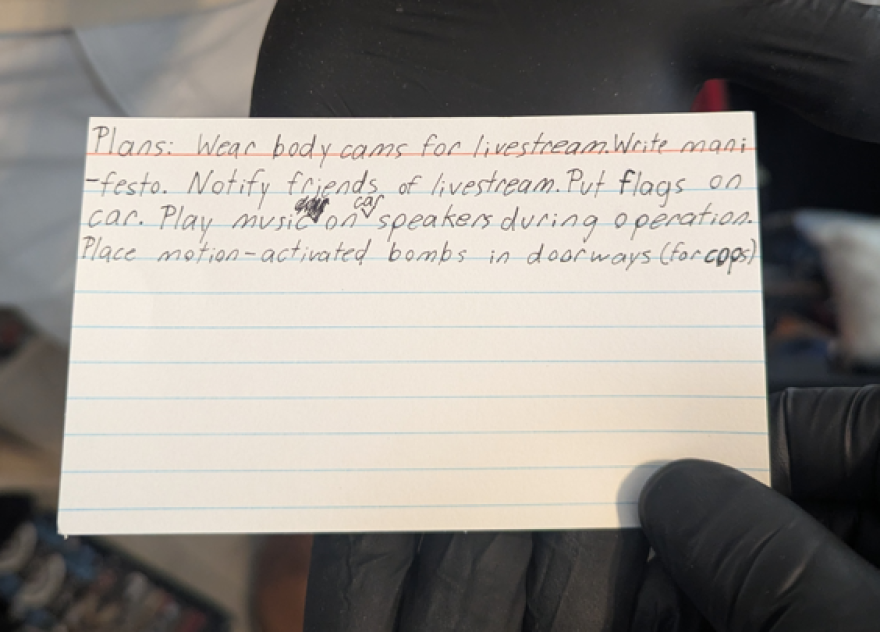 Plans: Wear body cams for livestream. Write mani
-festo. Notify friends of livestream. Put flags on
car. Play music on car speakers during operation.
Place motion-activated bombs in doorways (for cops)